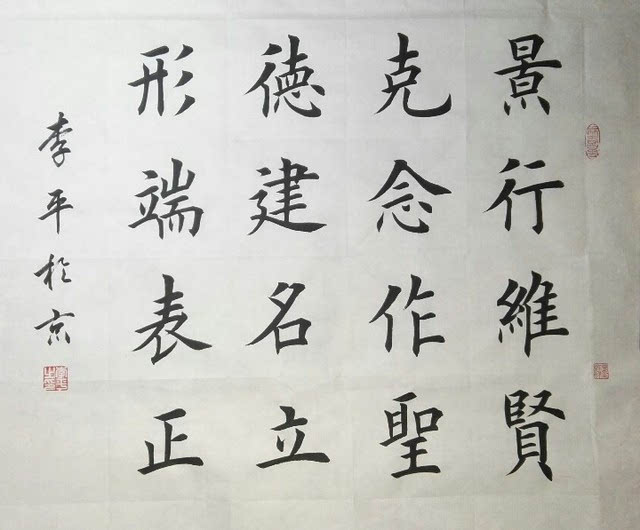 景行維賢
克念作聖
德建名立
形端表正
李平於京